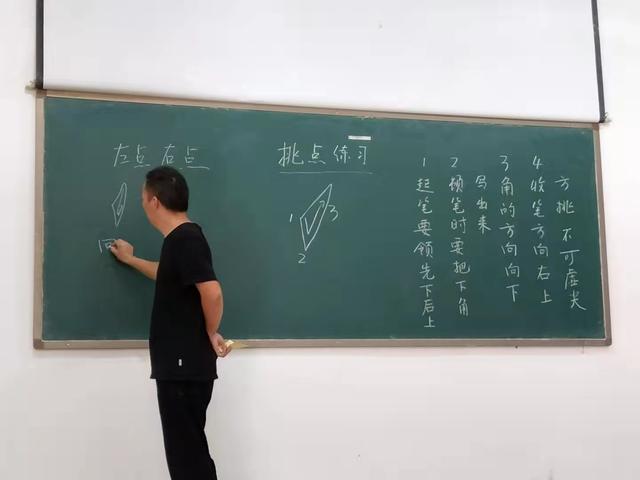 左点 右点
回
挑点练习
1
3
2
1 起笔要领先下后上
2 顿笔时要把下角
写出来
3 角的方向向下
4 收笔方向右上
方挑不可虚尖